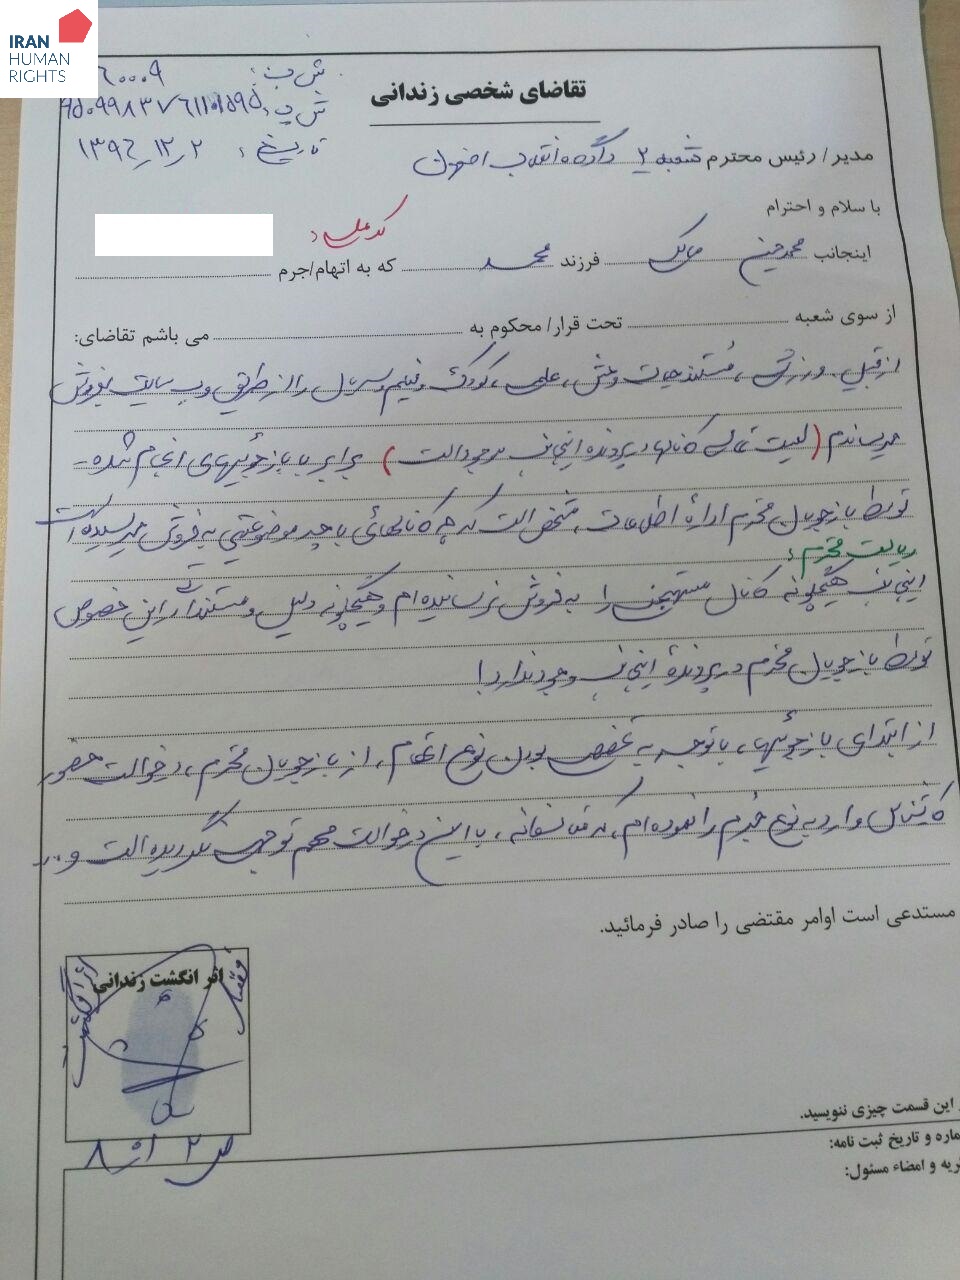 IRAN
HUMAN
RIGHTS
تقاضای شخصی زندانی
ش ب: ۶۰۰۰۹
ش پ: ۹۵۰۹۹۸۳۷۶۱۱۰۱۵۹۵
تاریخ: ۱۳۹۶/۱۲/۲
مدیر/ رئیس محترم شعبه ۲ دادگاه انقلاب اصفهان
با سلام و احترام
کد ملی:
اینجانب محمدحسین مالکی فرزند محمد که به اتهام/جرم
از سوی شعبه تحت قرار/ محکوم به می باشم تقاضای:
از قبیل: ورزشی، مُستند حیات وحش، علمی، کودک و فیلم و سریال را از طریق وب سایت بفروش
میرساندم (لیست تمامی کانالها در پرونده اینجانب موجود است) برابر با بازجوئیهای انجام شده-
توسط بازجویان محترم اداره اطلاعات، مشخص است که چه کانالهای با چه موضوعیتی به فروش میرسیده است
ریاست محترم:
اینجانب هیچگونه کانال مستهجن را به فروش نرسانیده ام و هیچگونه دلیل و مستنداتی در این خصوص
توسط بازجویان محترم در پرونده اینجانب وجود ندارد!
از ابتدای بازجوئیها، با توجه به تخصصی بودن نوع اتهام، از بازجویان محترم، درخواست حضور
کارشناس وارد به نوع جُرم را نموده ام، که متاسفانه، با این درخواست مهم توجهی نگردیده است و...
مستدعی است اوامر مقتضی را صادر فرمائید.
اثر انگشت زندانی
اثر انگشت
ص ۲ از ۸
این قسمت چیزی ننویسید.
ماره و تاریخ ثبت نامه:
ریه و امضاء مسئول: